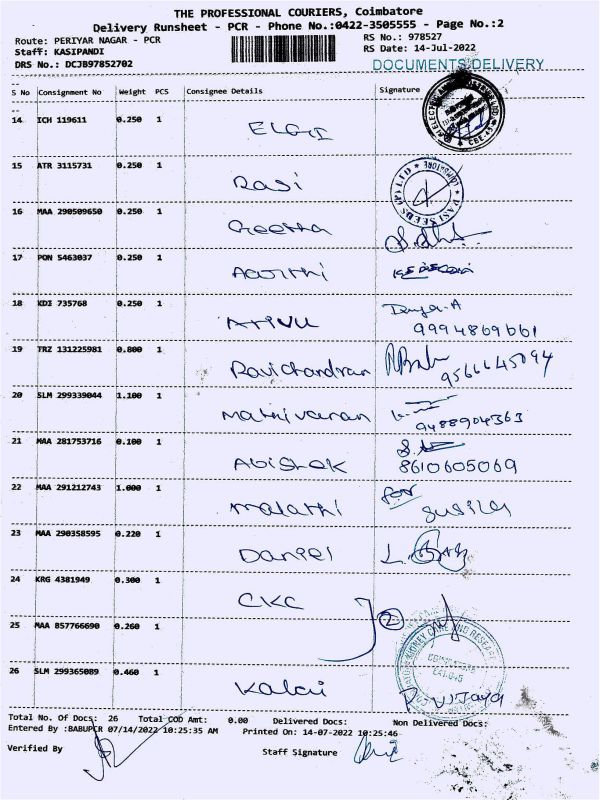 THE PROFESSIONAL COURIERS, Coimbatore
Delivery Runsheet - PCR - Phone No.:0422-3505555 - Page No.:2
Route: PERIYAR NAGAR - PCR
RS No.: 978527
Staff: KASIPANDI
RS Date: 14-Jul-2022
DRS No.: DCJB97852702
DOCUMENTS DELIVERY
S No Consignment No Weight PCS Consignee Details Signature
14 ICH 119611 0.250 1 ELGI
15 ATR 3115731 0.250 1 Rasi
RASI SEEDS
COIMBATORE
16 MAA 290509650 0.250 1 Geetha
17 PON 5463037 0.250 1
18 KDI 735768 0.250 1 Arivu
Divya-A
9994869661
19 TRZ 131225981 0.800 1 Ravichandran
9566645094
20 SLM 299339044 1.100 1 Mathivanan
9488904363
21 MAA 281753716 0.100 1 Abishek
8610605069
22 MAA 291212743 1.000 1 Malathi
for
Susila
23 MAA 290358595 0.220 1 Daniel
24 KRG 4381949 0.300 1 CKC
2
25 MAA 857766690 0.260 1
KIDNEY CARE AND RESEARCH
26 SLM 299365089 0.460 1 Kalai
P. Vijaya
Total No. Of Docs: 26 Total COD Amt: 0.00 Delivered Docs: Non Delivered Docs:
Entered By :BABUPCR 07/14/2022 10:25:35 AM Printed On: 14-07-2022 10:25:46
Verified By Staff Signature